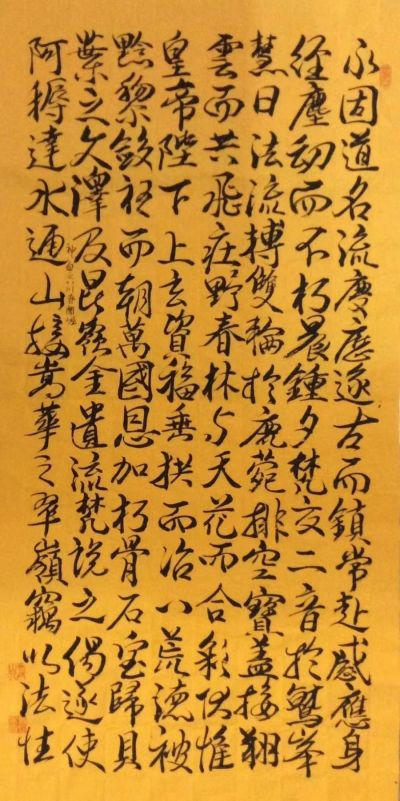 永固道名流慶歷遂古而鎮常赴感應身
經塵劫而不朽晨鍾夕梵交二音於鷲峯
慧日法流轉雙輪於鹿菀排空寶蓋接翔
雲而共飛莊野春林与天花而合彩伏惟
皇帝陛下上玄資福垂拱而治八荒德被
黔黎斂衽而朝萬國恩加朽骨石室歸貝
葉之文澤及昆金匱流梵說之偈遂使
神甸之八川耆闍崛
阿耨達水通山接嵩華之翠嶺竊以法性